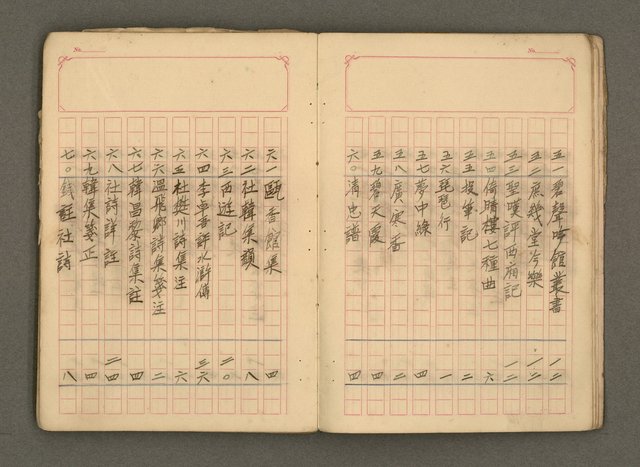 No.
五一碧聲吟館叢書 一二
五二展幾堂今樂 一二
五三聖嘆評西廂記 一二
五四倚晴樓七種曲 六
五五投筆記 二
五六琵琶行 一
五七夢中緣 四
五八廣寒香 二
五九碧天霞 四
六〇清忠譜 四
No.
六一甌香館集 四
六二杜韓集韻 八
六三西遊記 二〇
六四李卓吾評水滸傳 三六
六五杜樊川詩集注 六
六六溫飛卿詩集箋注 二
六七韓昌黎詩集註 四
六八杜詩詳註 二四
六九韓集箋正 四
七〇錢註杜詩 八